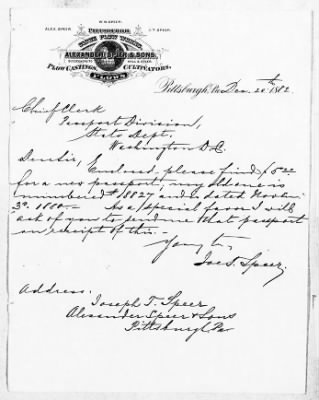 W. W. SPEER.
ALEX. SPEER. J. T. SPEER.
PITTSBURGH
PLOW WORKS
ALEXANDER SPEER & SONS,
SUCCESSORS TO HALL & SPEER.
PLOW CASTINGS, CULTIVATORS,
PLOWS
Pittsburgh, Pa Dec. 20th 1882
Chief Clerk
Passport Division,
State Dept.
Washington D.C.
Dear Sir, Enclosed, please find $5.00
for a new passport, my old one is
numbered # 18827 and is dated Novbr
3d. 1880. – As a special favor I will
ask of you to send me that passport
on receipt of this. –
Yours tr.
Jos. T. Speer.
Address.
Joseph T. Speer
Alexander Speer & Sons
Pittsburgh, Pa